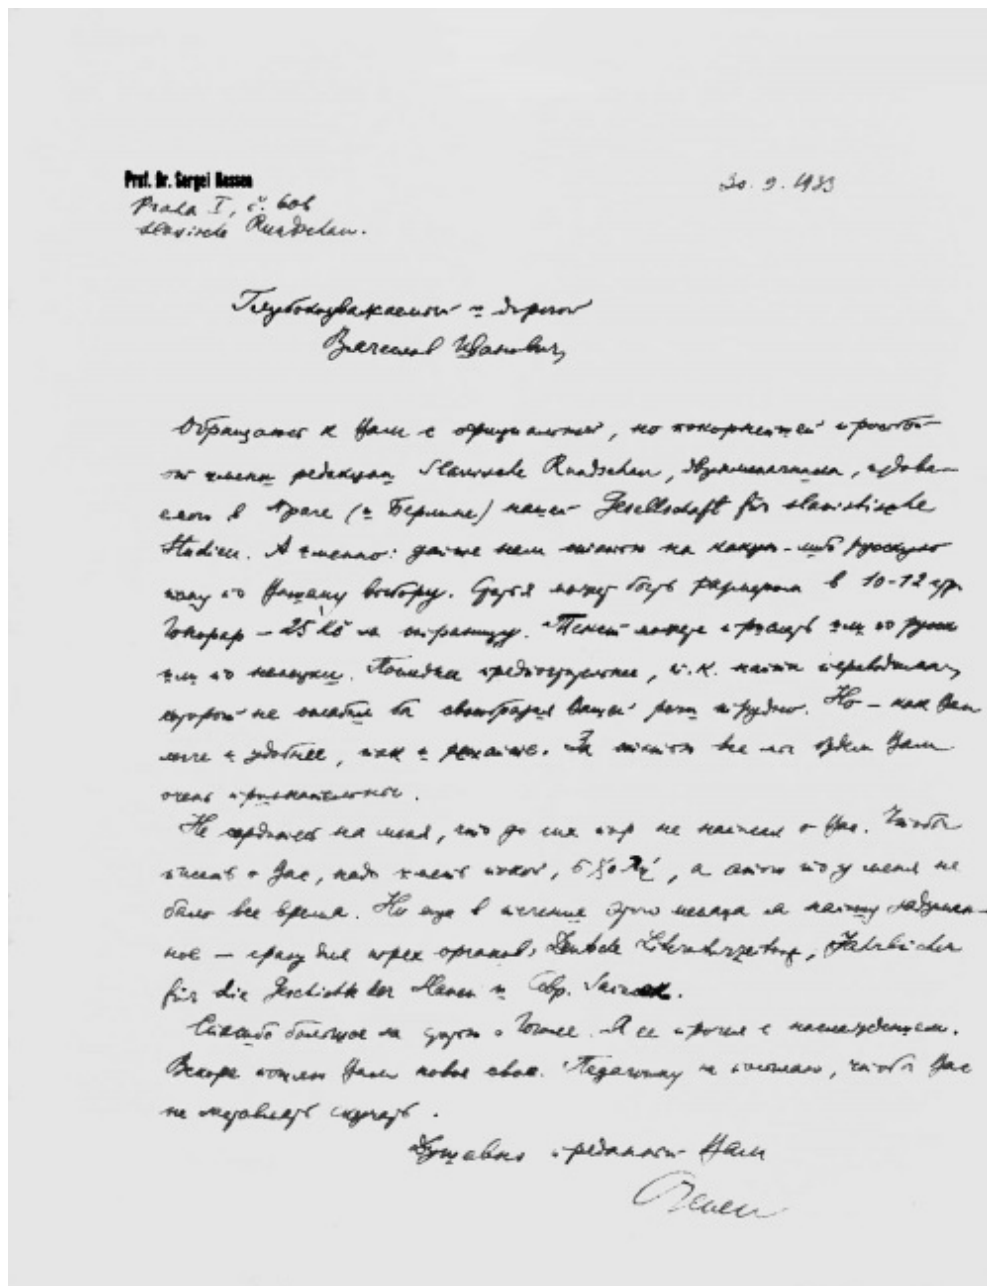 Prof. Dr. Sergei Hessen
30. 9. 1933
Praha I, č. 606
Slavische Rundschau.
Глубокоуважаемый и дорогой
Вячеслав Иванович,
Обращаюсь к Вам с официальной, но покорнейшей просьбой
от имени редакции Slavische Rundschau, двухмесячника, издавае-
мого в Праге (и Берлине) нашей Gesellschaft für slavistische
Studien. А именно: дайте нам статью на какую-либо русскую
тему по Вашему выбору. Статья может быть размером в 10-12 стр.
Гонорар – 25 Kč за страницу. Писать можете или по русски
или по немецки. Последнее предпочтительнее, т.к. найти переводчика,
который не ослабил бы своеобразия Вашей речи трудно. Но – как Вам
легче и удобнее, так и решайте. За статью все мы будем Вам
очень признательны.
Не сердитесь на меня, что до сих пор не написал о Вас. Чтобы
писать о Вас, надо иметь покой, а этого-то у меня не
было все время. Но еще в течение этого месяца я напишу задуман-
ное – сразу для трех органов: Deutsche Literaturzeitung, Jahrbücher
für die Geschichte der Slaven и Совр. Записок.
Спасибо большое за статью о Гоголе. Я ее прочел с наслаждением.
Вскоре пошлю Вам новое свое. Педагогику не посылаю, чтобы Вас
не заставлять скучать.
Душевно преданный Вам
Гессен